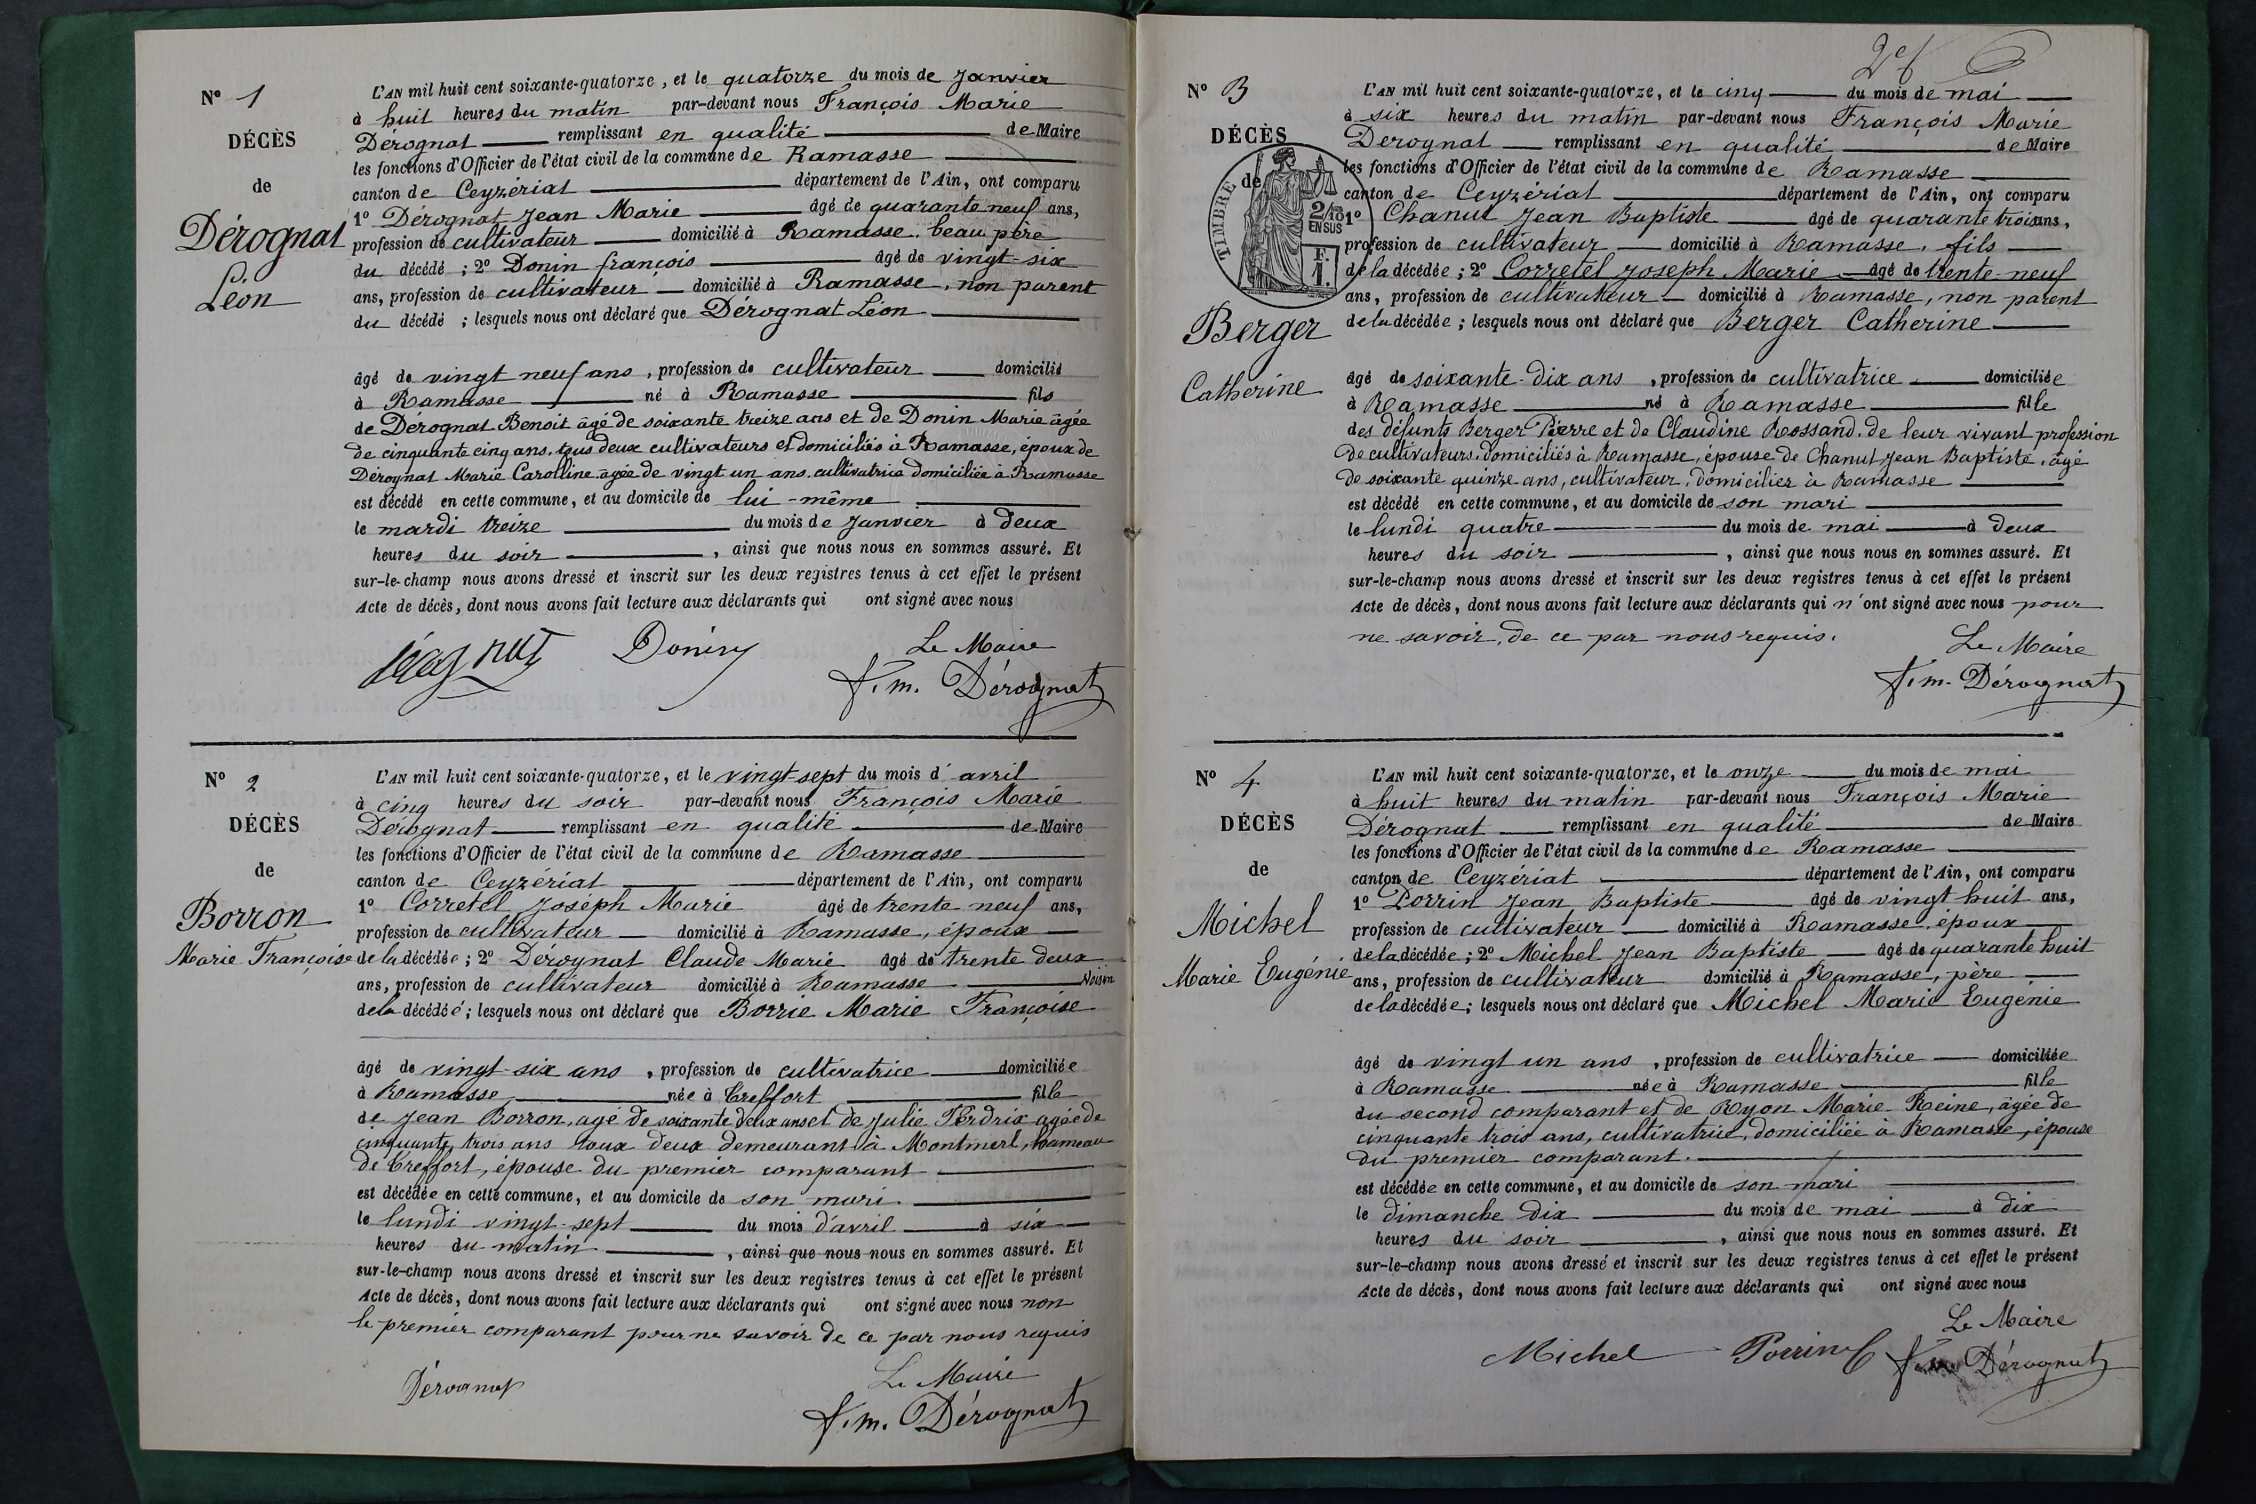 N° 1
DÉCÈS
de
Dérognat
Léon
L'AN mil huit cent soixante-quatorze, et le quatorze du mois de Janvier
à huit heures du matin par-devant nous François Marie
Dérognat remplissant en qualité de Maire
les fonctions d'Officier de l'état civil de la commune de Ramasse
canton de Ceyzériat département de l'Ain, ont comparu
1° Dérognat Jean Marie âgé de quarante neuf ans,
profession de cultivateur domicilié à Ramasse. beau père
du décédé ; 2° Donin françois âgé de vingt-six
ans, profession de cultivateur domicilié à Ramasse, non parent
du décédé ; lesquels nous ont déclaré que Dérognat Léon
âgé de vingt neuf ans, profession de cultivateur domicilié
à Ramasse né à Ramasse fils
de Dérognat Benoit âgé de soixante treize ans et de Donin Marie âgée
de cinquante cinq ans, tous deux cultivateurs et domiciliés à Ramasse, époux de
Dérognat Marie Carolline âgée de vingt un ans, cultivatrice domiciliée à Ramasse
est décédé en cette commune, et au domicile de lui-même
le mardi treize du mois de Janvier à deux
heures du soir, ainsi que nous nous en sommes assuré. Et
sur-le-champ nous avons dressé et inscrit sur les deux registres tenus à cet effet le présent
Acte de décès, dont nous avons fait lecture aux déclarants qui ont signé avec nous
Donin
Le Maire
f. m. Dérognat
N° 2
DÉCÈS
de
Borron
Marie Françoise
L'AN mil huit cent soixante-quatorze, et le vingt-sept du mois d'avril
à cinq heures du soir par-devant nous François Marie
Dérognat remplissant en qualité de Maire
les fonctions d'Officier de l'état civil de la commune de Ramasse
canton de Ceyzériat département de l'Ain, ont comparu
1° Corretel Joseph Marie âgé de trente neuf ans,
profession de cultivateur domicilié à Ramasse, époux
de la décédée ; 2° Dérognat Claude Marie âgé de trente deux
ans, profession de cultivateur domicilié à Ramasse Voisin
de la décédée ; lesquels nous ont déclaré que Borrie Marie Françoise
âgé de vingt-six ans, profession de cultivatrice domiciliée
à Ramasse née à Treffort fille
de Jean Borron, agé de soixante deux ans et de Julie Perdrix agée de
cinquante trois ans tous deux demeurant à Montmerl, hameau
de Treffort, épouse du premier comparant
est décédée en cette commune, et au domicile de son mari
le lundi vingt-sept du mois d'avril à six
heures du matin, ainsi que nous nous en sommes assuré. Et
sur-le-champ nous avons dressé et inscrit sur les deux registres tenus à cet effet le présent
Acte de décès, dont nous avons fait lecture aux déclarants qui ont signé avec nous non
le premier comparant pour ne savoir de ce par nous requis
Dérognat
Le Maire
f. m. Dérognat
2ef
N° 3
DÉCÈS
de
TIMBRE
2/10 EN SUS
F. 1.
Berger
Catherine
L'AN mil huit cent soixante-quatorze, et le cinq du mois de mai
à six heures du matin par-devant nous François Marie
Derognat remplissant en qualité de Maire
les fonctions d'Officier de l'état civil de la commune de Ramasse
canton de Ceyzériat département de l'Ain, ont comparu
1° Chanut Jean Baptiste âgé de quarante trois ans,
profession de cultivateur domicilié à Ramasse, fils
de la décédée ; 2° Corretel Joseph Marie âgé de trente-neuf
ans, profession de cultivateur domicilié à Ramasse, non parent
de la décédée ; lesquels nous ont déclaré que Berger Catherine
âgé de soixante-dix ans, profession de cultivatrice domiciliée
à Ramasse né à Ramasse fille
des défunts Berger Pierre et de Claudine Rossand. de leur vivant profession
de cultivateurs, domiciliés à Ramasse, épouse de Chanut Jean Baptiste, âgé
de soixante quinze ans, cultivateur, domicilier à Ramasse
est décédé en cette commune, et au domicile de son mari
le lundi quatre du mois de mai à deux
heures du soir, ainsi que nous nous en sommes assuré. Et
sur-le-champ nous avons dressé et inscrit sur les deux registres tenus à cet effet le présent
Acte de décès, dont nous avons fait lecture aux déclarants qui n'ont signé avec nous pour
ne savoir, de ce par nous requis.
Le Maire
f. m. Dérognat
N° 4
DÉCÈS
de
Michel
Marie Eugénie
L'AN mil huit cent soixante-quatorze, et le onze du mois de mai
à huit heures du matin par-devant nous François Marie
Dérognat remplissant en qualité de Maire
les fonctions d'Officier de l'état civil de la commune de Ramasse
canton de Ceyzériat département de l'Ain, ont comparu
1° Porrin Jean Baptiste âgé de vingt huit ans,
profession de cultivateur domicilié à Ramasse, époux
de la décédée ; 2° Michel Jean Baptiste âgé de quarante huit
ans, profession de cultivateur domicilié à Ramasse, père
de la décédée ; lesquels nous ont déclaré que Michel Marie Eugénie
âgé de vingt un ans, profession de cultivatrice domiciliée
à Ramasse née à Ramasse fille
du second comparant et de Ryon Marie-Reine, âgée de
cinquante trois ans, cultivatrice, domiciliée à Ramasse, épouse
du premier comparant.
est décédée en cette commune, et au domicile de son mari
le dimanche dix du mois de mai à dix
heures du soir, ainsi que nous nous en sommes assuré. Et
sur-le-champ nous avons dressé et inscrit sur les deux registres tenus à cet effet le présent
Acte de décès, dont nous avons fait lecture aux déclarants qui ont signé avec nous
Le Maire
Michel Porrin f. m. Dérognat